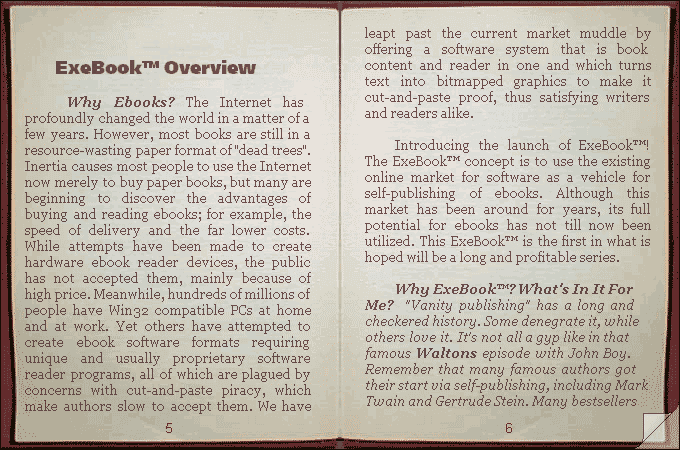 ExeBook™ Overview
Why Ebooks? The Internet has
profoundly changed the world in a matter of a
few years. However, most books are still in a
resource-wasting paper format of "dead trees".
Inertia causes most people to use the Internet
now merely to buy paper books, but many are
beginning to discover the advantages of
buying and reading ebooks; for example, the
speed of delivery and the far lower costs.
While attempts have been made to create
hardware ebook reader devices, the public
has not accepted them, mainly because of
high price. Meanwhile, hundreds of millions of
people have Win32 compatible PCs at home
and at work. Yet others have attempted to
create ebook software formats requiring
unique and usually proprietary software
reader programs, all of which are plagued by
concerns with cut-and-paste piracy, which
make authors slow to accept them. We have
5
leapt past the current market muddle by
offering a software system that is book
content and reader in one and which turns
text into bitmapped graphics to make it
cut-and-paste proof, thus satisfying writers
and readers alike.
Introducing the launch of ExeBook™!
The ExeBook™ concept is to use the existing
online market for software as a vehicle for
self-publishing of ebooks. Although this
market has been around for years, its full
potential for ebooks has not till now been
utilized. This ExeBook™ is the first in what is
hoped will be a long and profitable series.
Why ExeBook™? What's In It For
Me? "Vanity publishing" has a long and
checkered history. Some denegrate it, while
others love it. It's not all a gyp like in that
famous Waltons episode with John Boy.
Remember that many famous authors got
their start via self-publishing, including Mark
Twain and Gertrude Stein. Many bestsellers
6